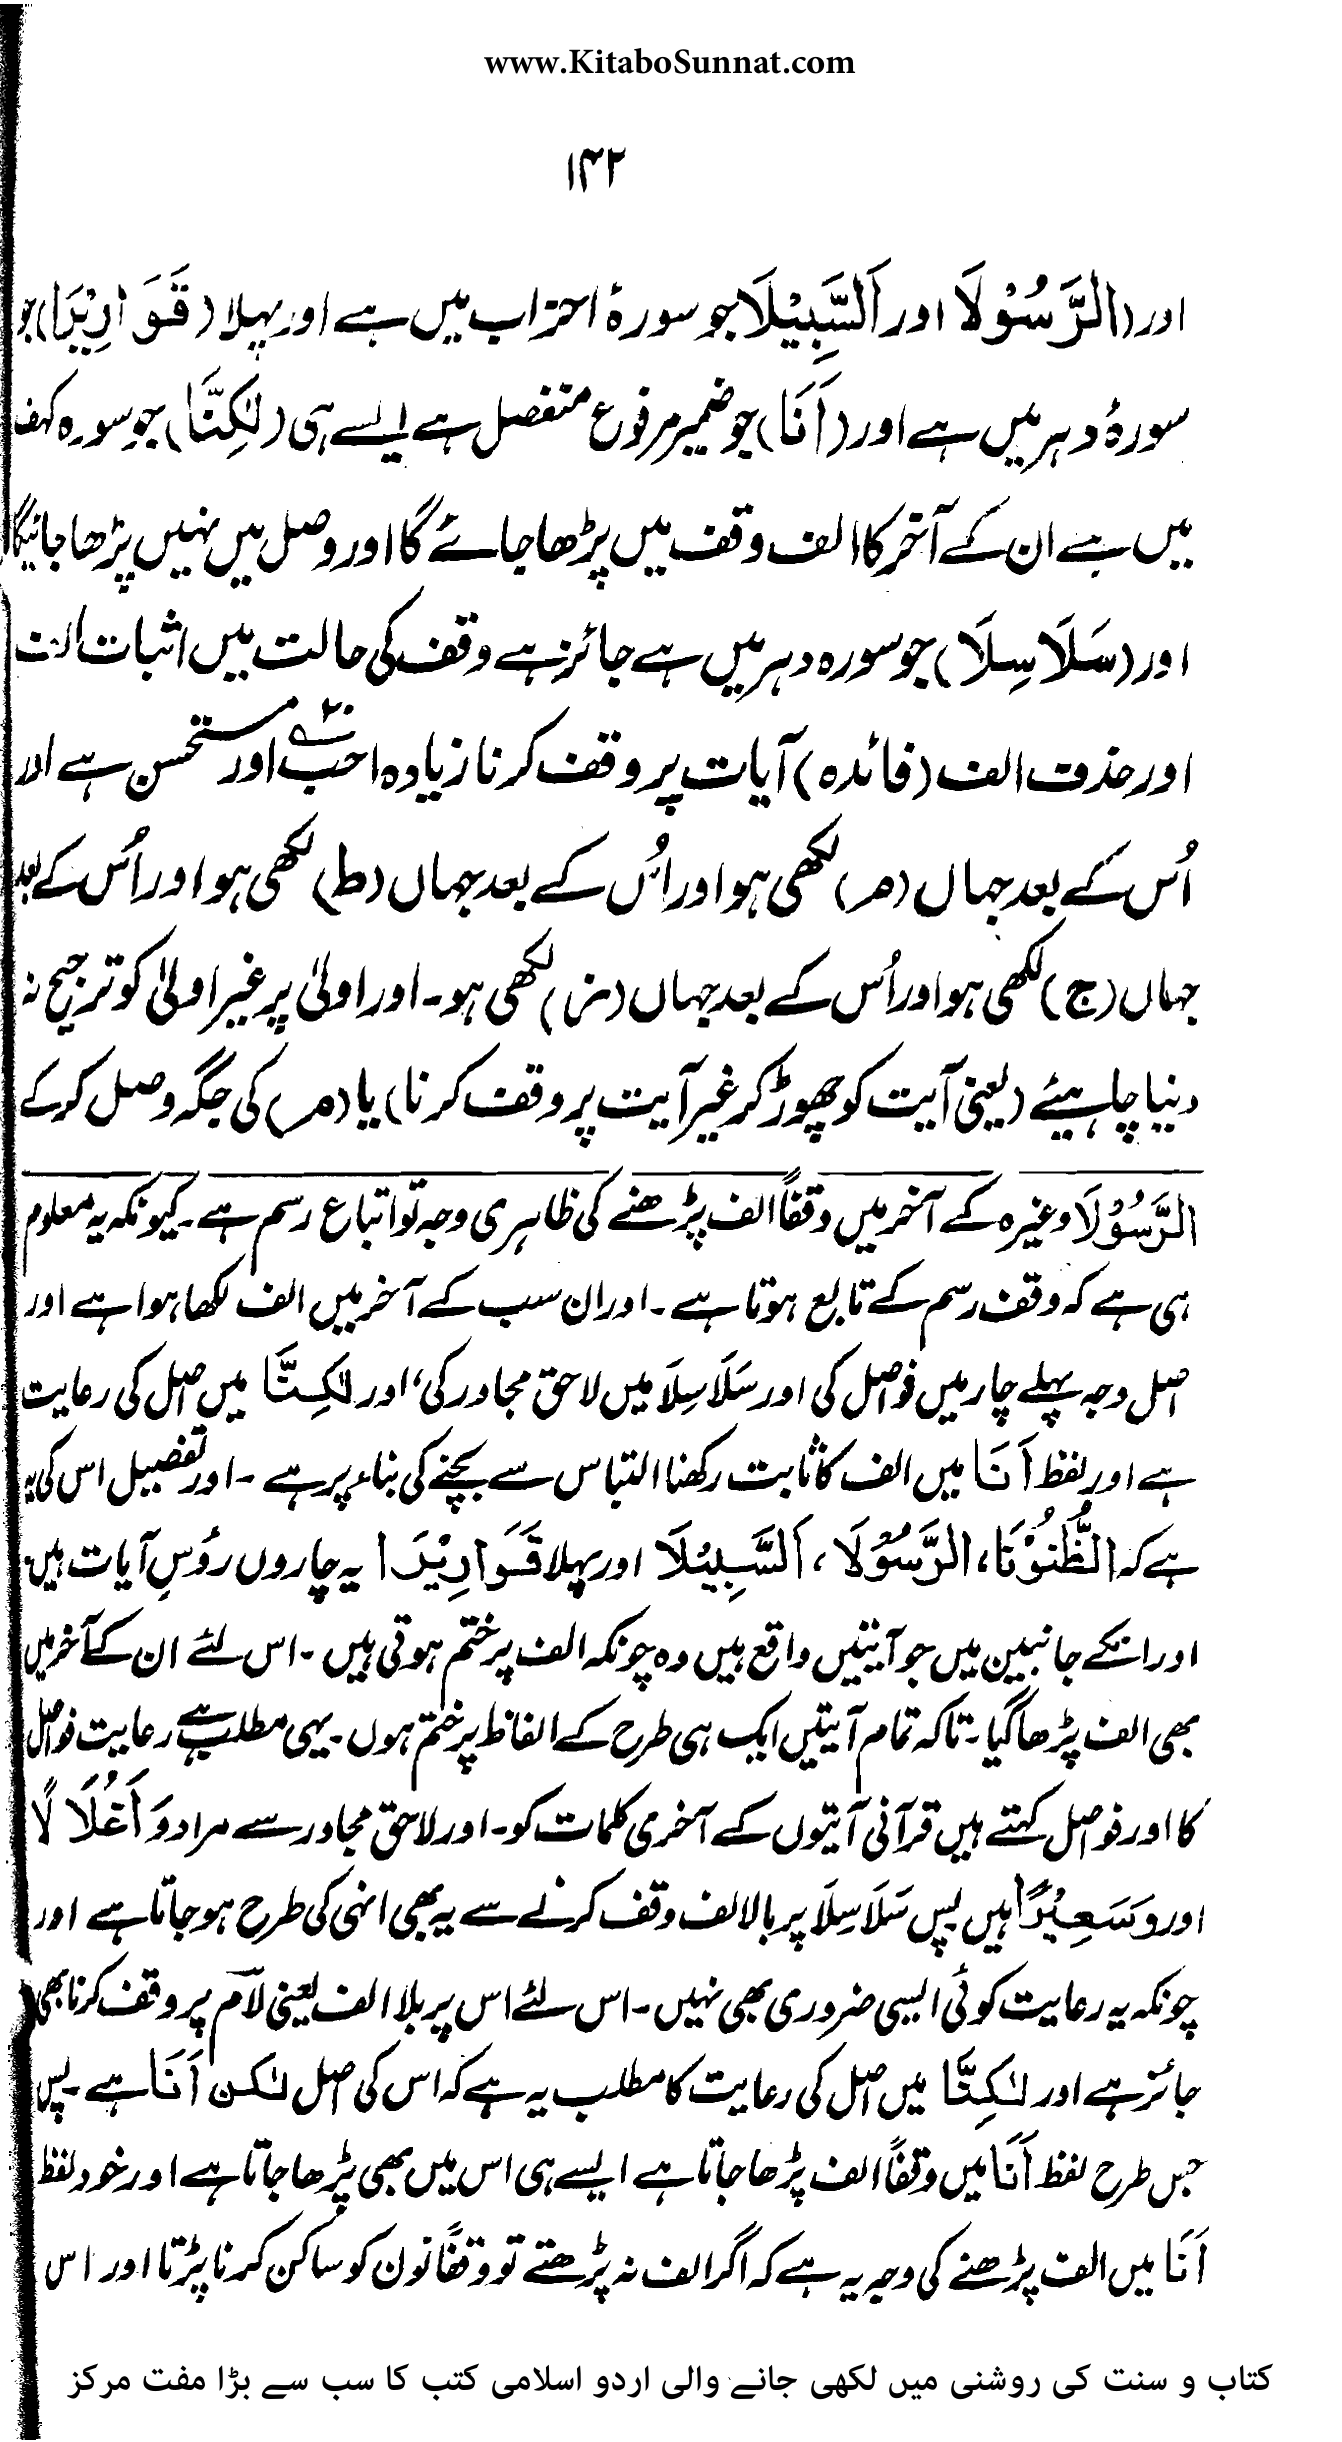 www.KitaboSunnat.com
۱۴۲
اور (الرَّسُوْلَا اور اَلسَّبِيْلَا جو سورۂ احزاب میں ہے اور پہلا (قَوَارِيْرَا) جو
سورۂ دہر میں ہے اور (اَنَا) جو ضمیر مرفوع منفصل ہے ایسے ہی (لٰكِنَّا) جو سورہ کہف
میں ہے ان کے آخر کا الف وقف میں پڑھا جائے گا اور وصل میں نہیں پڑھا جائیگا
اور (سَلَاسِلَا) جو سورہ دہر میں ہے جائز ہے وقف کی حالت میں اثبات الف
اور حذف الف (فائدہ) آیات پر وقف کرنا زیادہ احبّ ہے۲۰ اور مستحسن ہے اور
اُس کے بعد جہاں (مـ) لکھی ہو اور اُس کے بعد جہاں (ط) لکھی ہو اور اُس کے بعد
جہاں (ج) لکھی ہو اور اُس کے بعد جہاں (ز) لکھی ہو۔ اور اولیٰ پر غیر اولیٰ کو ترجیح نہ
دینا چاہیئے (یعنی آیت کو چھوڑ کر غیر آیت پر وقف کرنا) یا (مـ) کی جگہ وصل کر کے
الرَّسُوْلَا وغیرہ کے آخر میں وقفاً الف پڑھنے کی ظاہری وجہ تو اتباع رسم ہے۔ کیونکہ یہ معلوم
ہی ہے کہ وقف رسم کے تابع ہوتا ہے۔ اور ان سب کے آخر میں الف لکھا ہوا ہے اور
اصل وجہ پہلے چار میں فواصل کی اور سَلَاسِلَا میں لاحق مجاور کی، اور لٰكِنَّا میں اصل کی رعایت
ہے اور لفظ اَنَا میں الف کا ثابت رکھنا التباس سے بچنے کی بناء پر ہے۔ اور تفصیل اس کی یہ
ہے کہ الظُّنُوْنَا، الرَّسُوْلَا، اَلسَّبِيْلَا اور پہلا قَوَارِيْرَا یہ چاروں رؤسِ آیات ہیں
اور انکے جانبین میں جو آیتیں واقع ہیں وہ چونکہ الف پر ختم ہوتی ہیں۔ اس لئے ان کے آخر میں
بھی الف پڑھا گیا۔ تاکہ تمام آیتیں ایک ہی طرح کے الفاظ پر ختم ہوں۔ یہی مطلب ہے رعایت فواصل
کا اور فواصل کہتے ہیں قرآنی آیتوں کے آخری کلمات کو۔ اور لاحق مجاور سے مراد وَاَغْلَالًا
اور وَسَعِيْرًا ہیں پس سَلَاسِلَا پر بالالف وقف کرنے سے یہ بھی انہی کی طرح ہو جاتا ہے اور
چونکہ یہ رعایت کوئی ایسی ضروری بھی نہیں۔ اس لئے اس پر بلا الف یعنی لآم پر وقف کرنا بھی
جائز ہے اور لٰكِنَّا میں اصل کی رعایت کا مطلب یہ ہے کہ اس کی اصل لٰكن اَنَا ہے۔ پس
جس طرح لفظ اَنَا میں وقفاً الف پڑھا جاتا ہے ایسے ہی اس میں بھی پڑھا جاتا ہے اور خود لفظ
اَنَا میں الف پڑھنے کی وجہ یہ ہے کہ اگر الف نہ پڑھتے تو وقفاً نون کو ساکن کرنا پڑتا اور اس
کتاب و سنت کی روشنی میں لکھی جانے والی اردو اسلامی کتب کا سب سے بڑا مفت مرکز